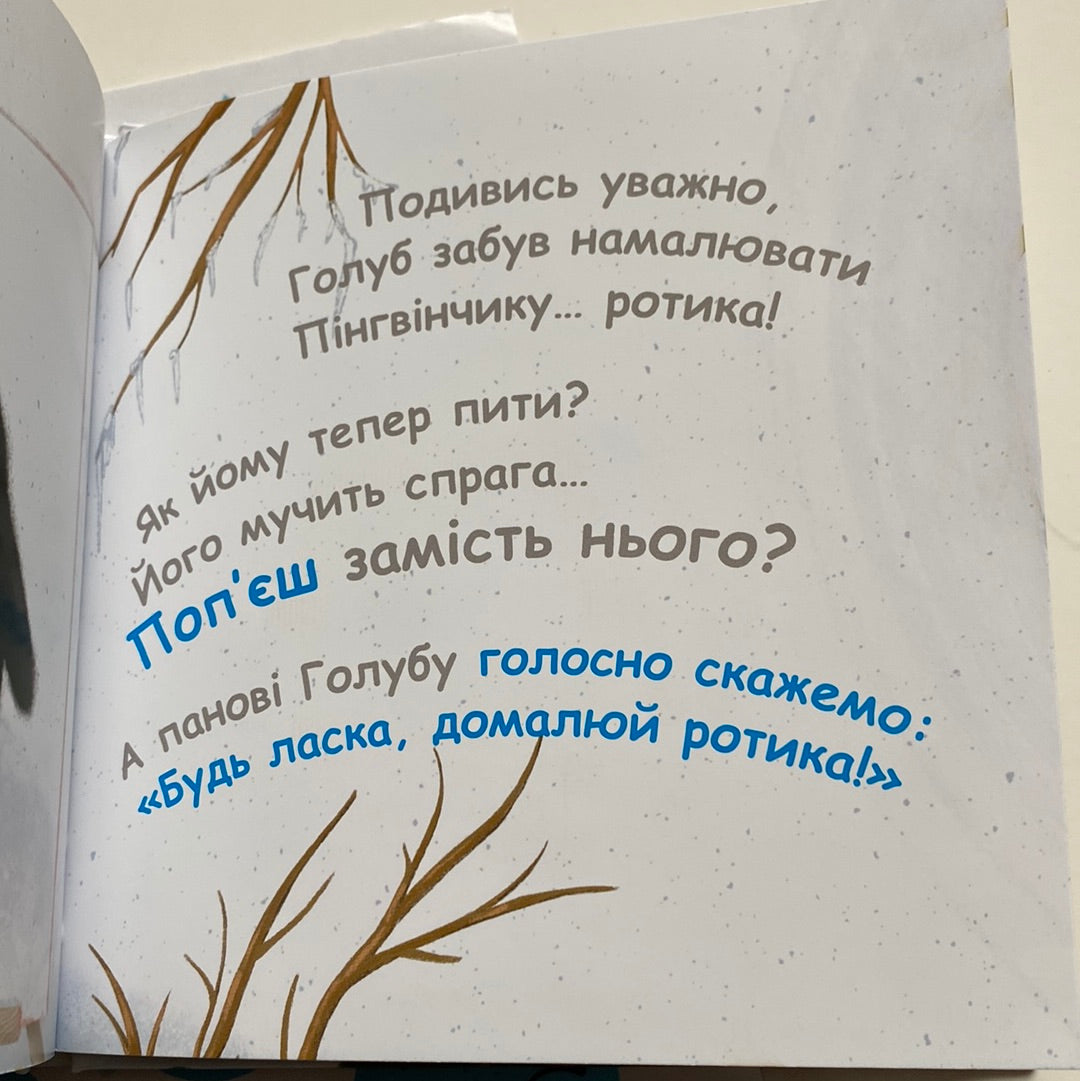 Подивись уважно,
Голуб забув намалювати
Пінгвінчику... ротика!
Як йому тепер пити?
Його мучить спрага...
Поп'єш замість нього?
А панові Голубу голосно скажемо:
«Будь ласка, домалюй ротика!»